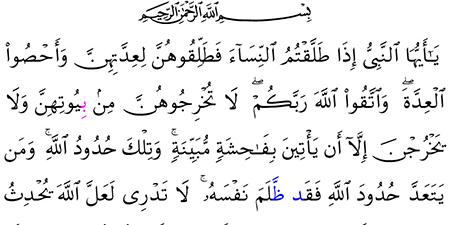 بِسْمِ ٱللَّهِ ٱلرَّحْمَٰنِ ٱلرَّحِيمِ
يَـٰٓأَيُّهَا ٱلنَّبِىُّ إِذَا طَلَّقْتُمُ ٱلنِّسَآءَ فَطَلِّقُوهُنَّ لِعِدَّتِهِنَّ وَأَحْصُوا۟
ٱلْعِدَّةَ ۖ وَٱتَّقُوا۟ ٱللَّهَ رَبَّكُمْ ۖ لَا تُخْرِجُوهُنَّ مِنۢ بِيُوتِهِنَّ وَلَا
يَخْرُجْنَ إِلَّآ أَن يَأْتِينَ بِفَـٰحِشَةٍ مُّبَيِّنَةٍ ۚ وَتِلْكَ حُدُودُ ٱللَّهِ ۚ وَمَن
يَتَعَدَّ حُدُودَ ٱللَّهِ فَقَد ظَّلَمَ نَفْسَهُۥ ۚ لَا تَدْرِى لَعَلَّ ٱللَّهَ يُحْدِثُ